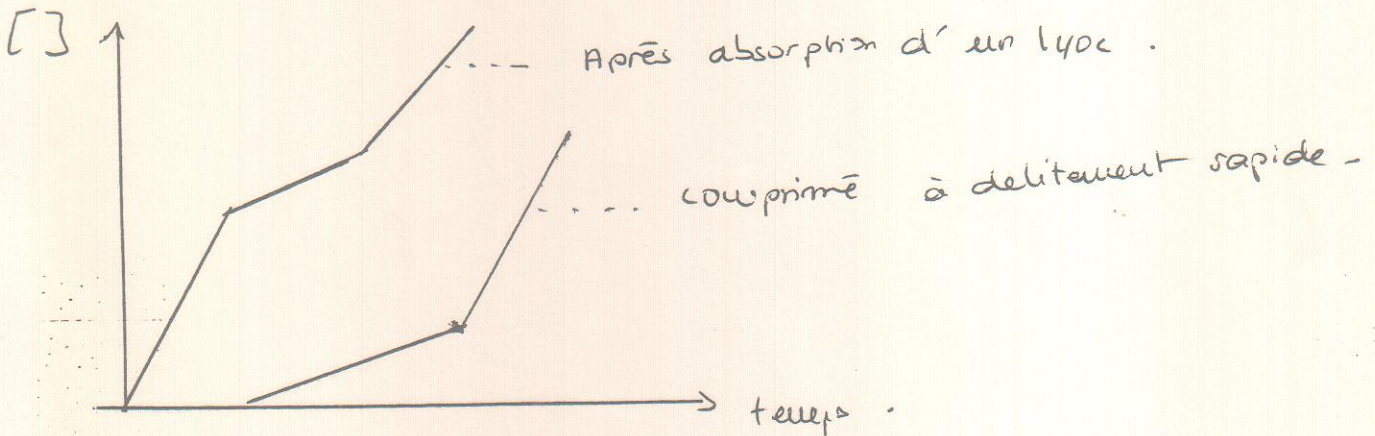 [ ]
Après absorption d'un lyoc .
comprimé à delitement rapide -
temps .